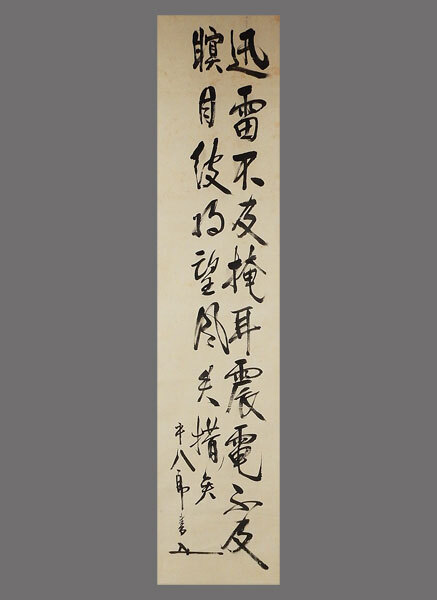 迅雷不及掩耳震電不及
瞑目彼将望風失措矣
平八郎書